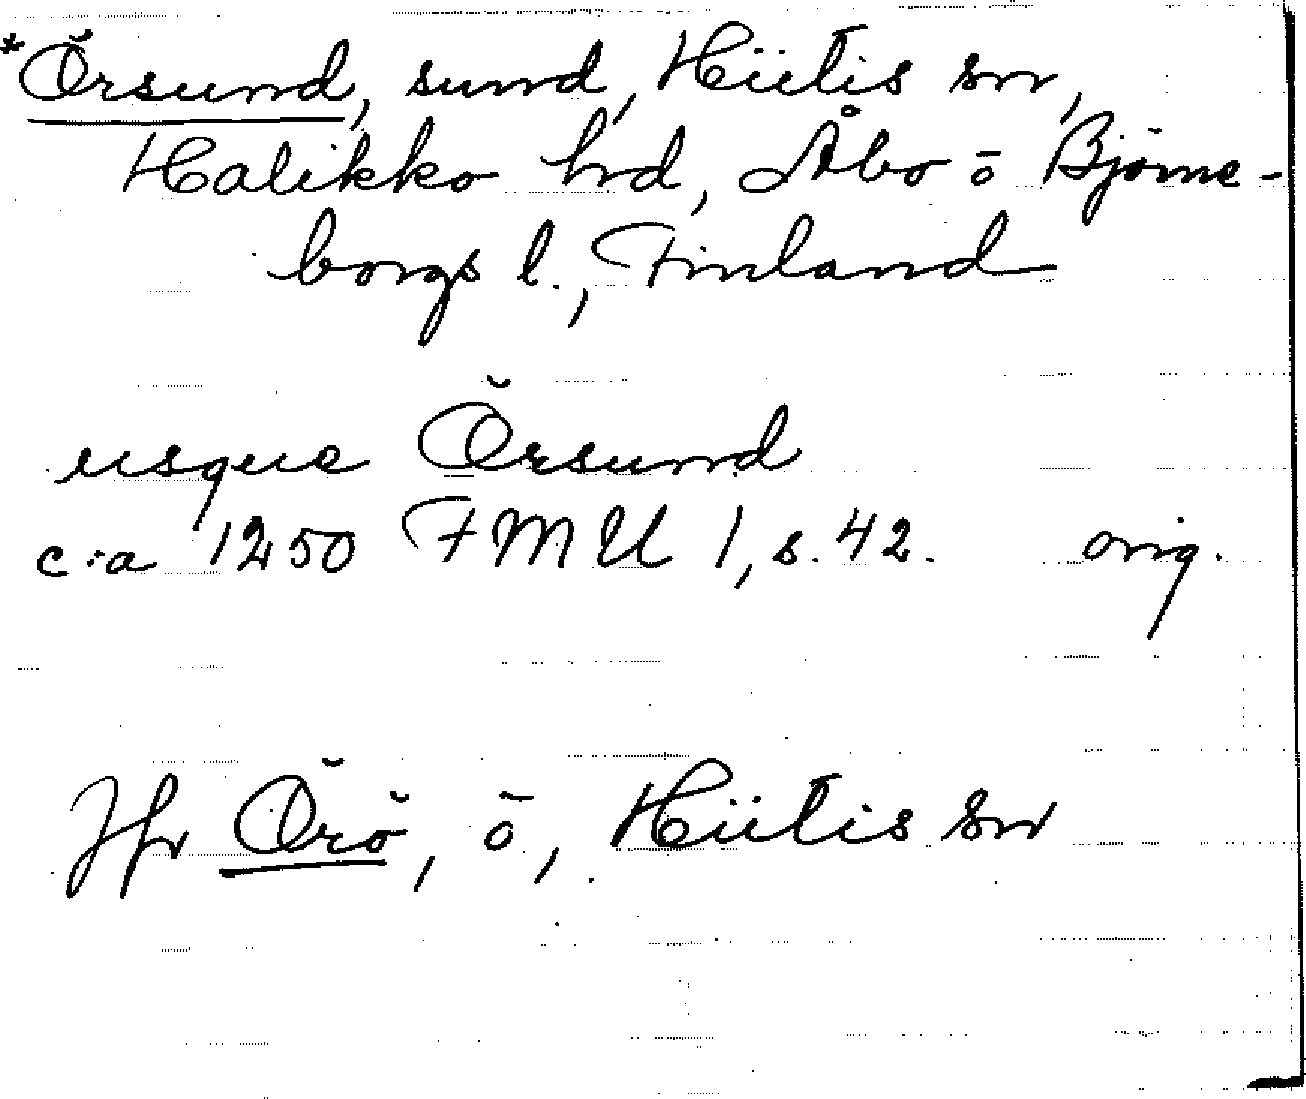 *Örsund, sund, Hiitis sn,
Halikko hd, Åbo ö Björne-
borgs l., Finland
usque Örsund
c:a 1250 FMU 1, s. 42. orig.
Jfr Örö, ö, Hiitis sn